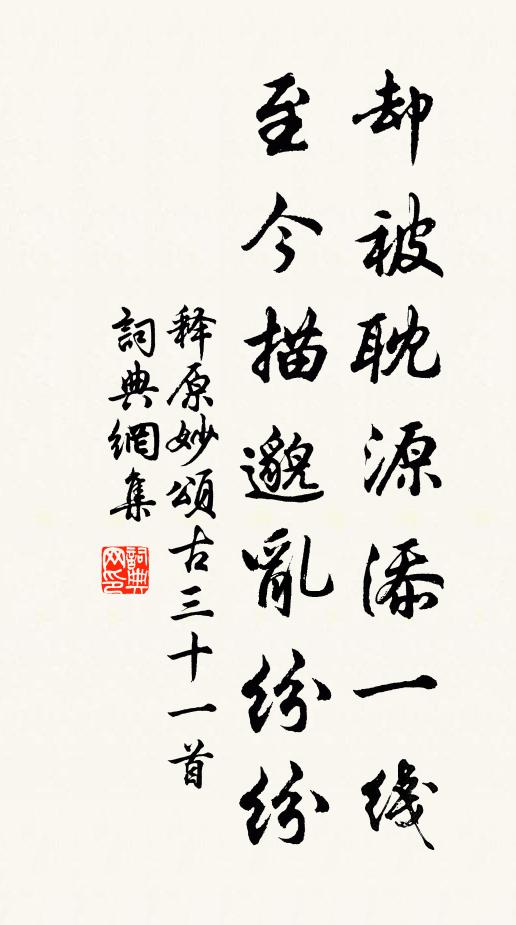 却被耽源添一线
至今描邈亂纷纷
释原妙頌古三十一首
詞典網集
詞典网印